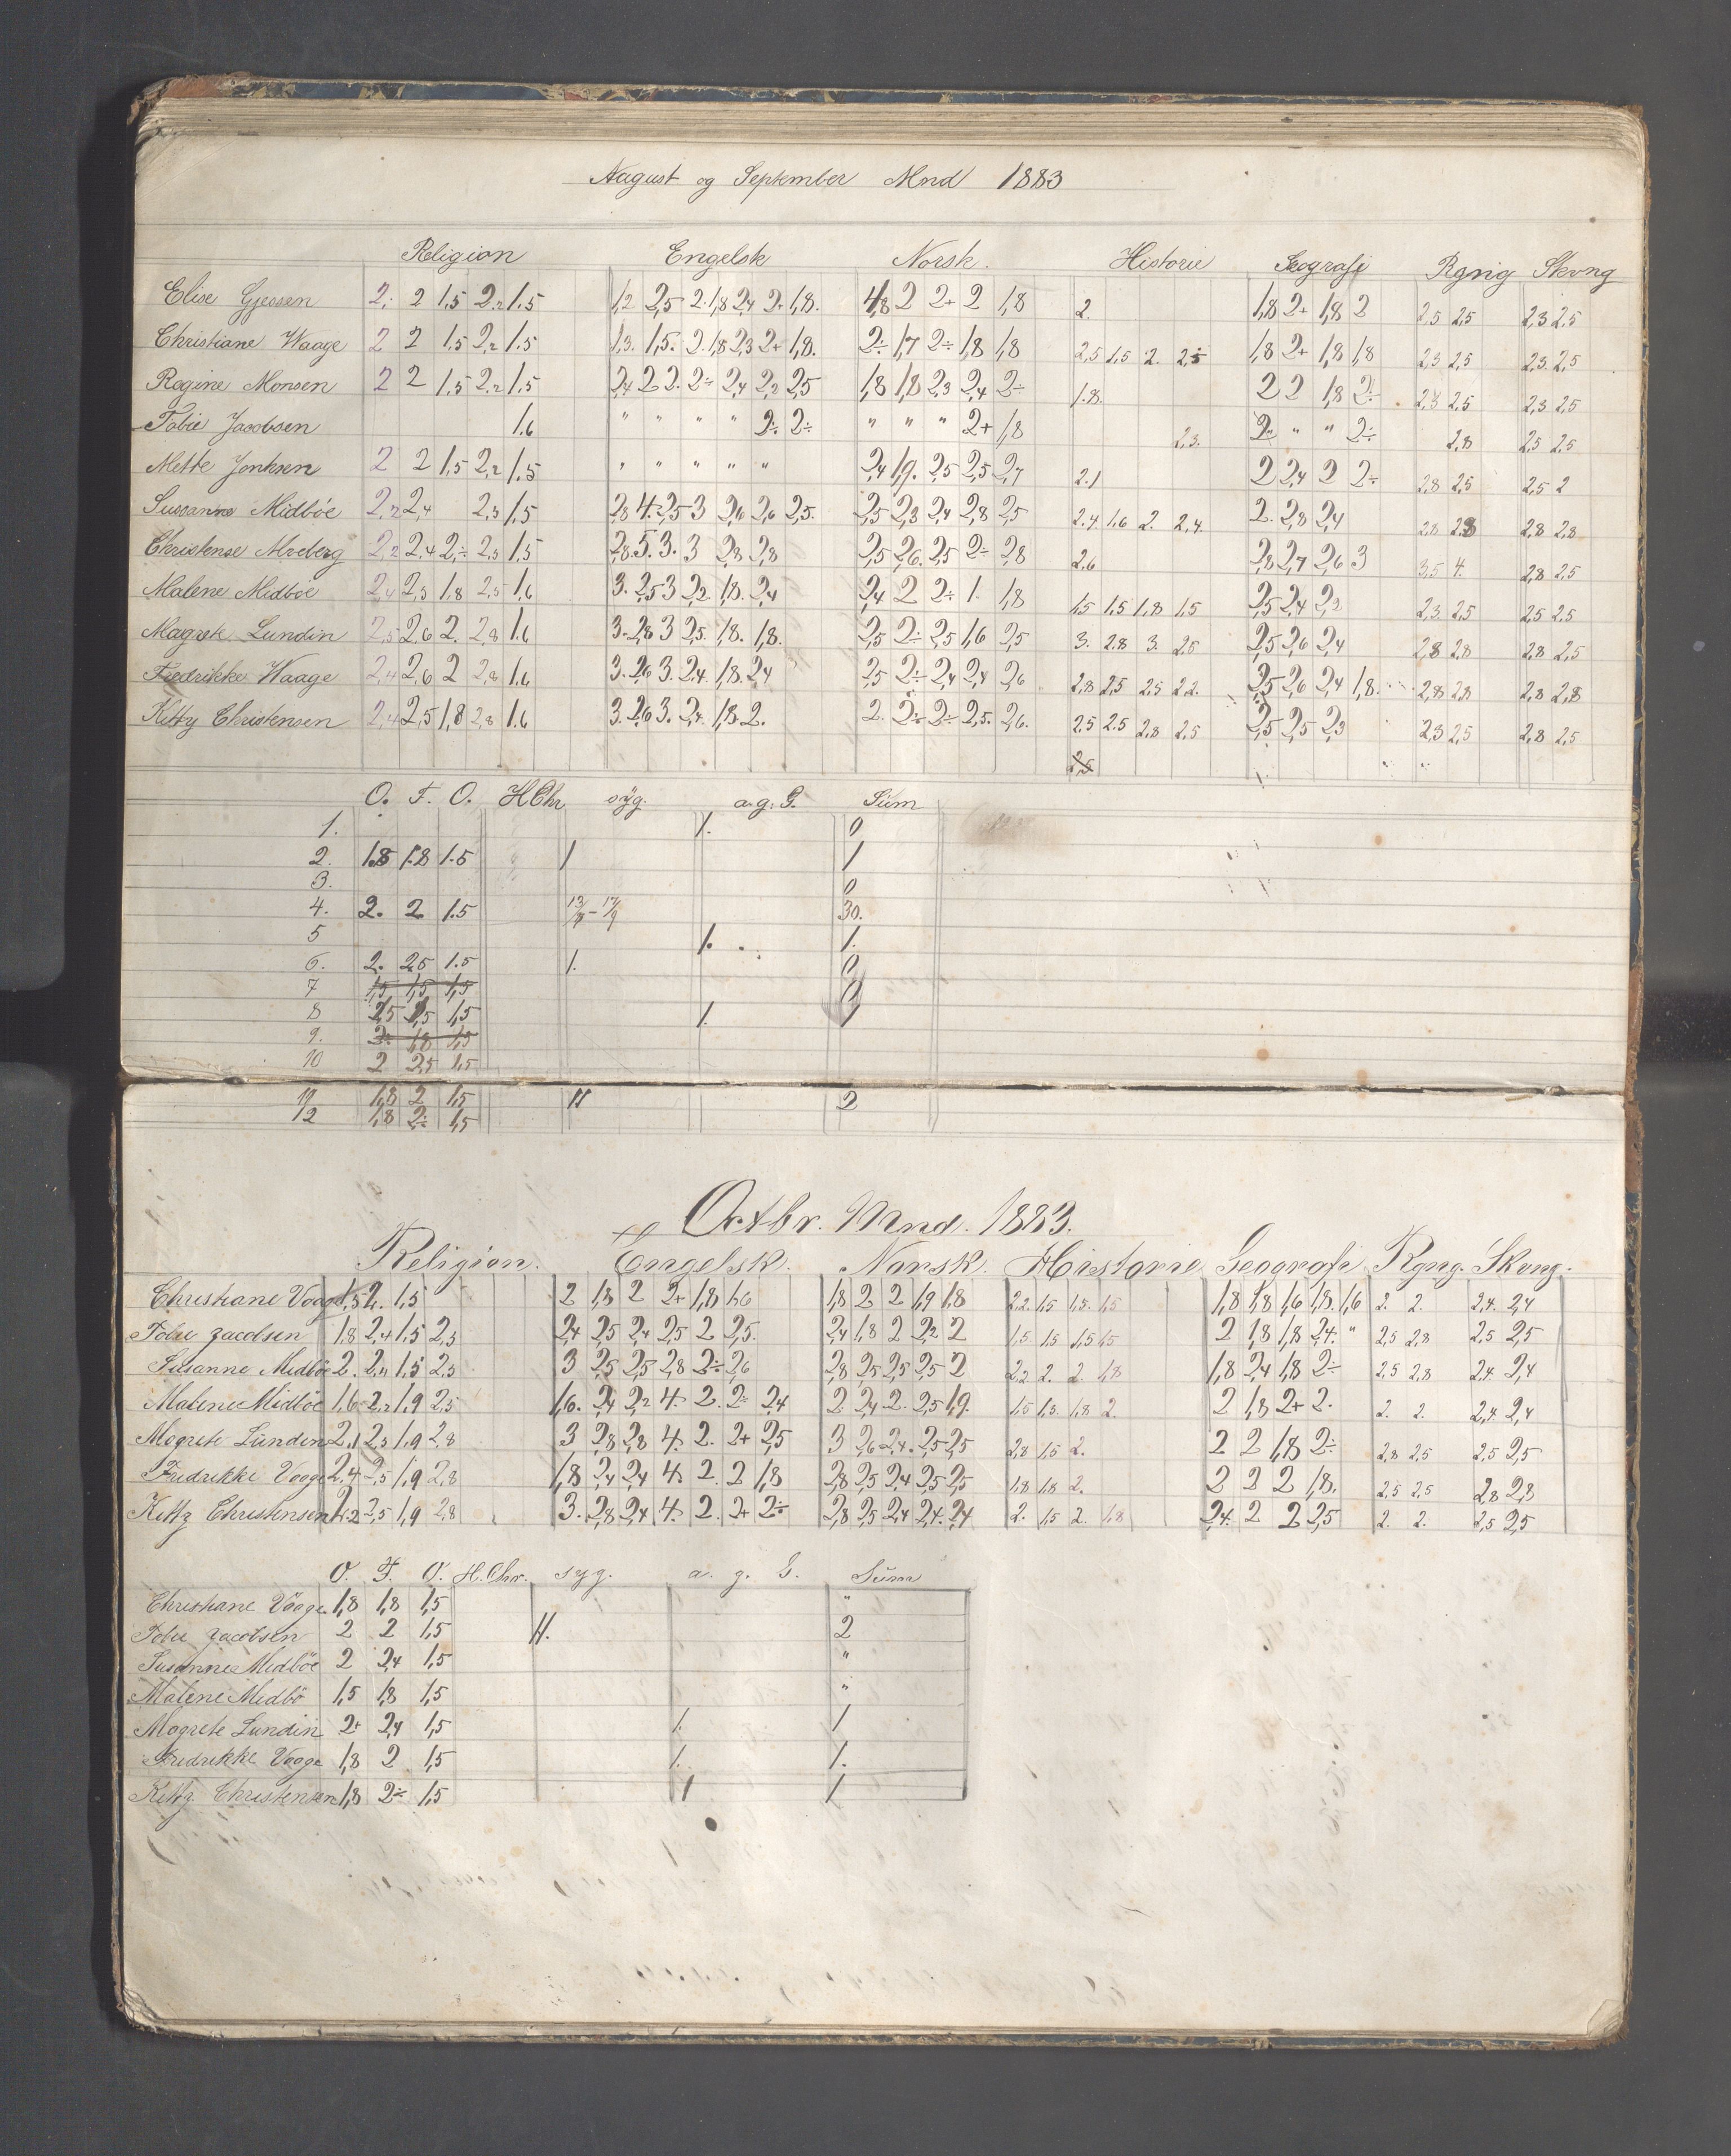 August og September Mnd 1883
Religion Engelsk Norsk. Historie Geografi Rgnig Skvng
Elise Gjessen 2. 2 1,5 2,2 1,5 1,2 2,5 2. 1,8 2,4 2. 1,8. 2 2+ 2 1,8 2. 1,8 2+ 1,8 2 2,5 2,5 2,3 2,5
Christiane Waage 2 2 1,5 2,2 1.5 1,3. 1,5. 2. 1,8 2,3 2+ 1,8. 2÷ 1,7 2÷ 1,8 1,8 2,5 1,5 2. 2,5 1,8 2+ 1,8 1,8 2,3 2,5 2,3. 2,5
Regine Monsen 2 2 1,5 2,2 1,5 2,4 2 2. 2÷ 2,4 2,2 2,5 1,8 1,8 2,3 2,4 2÷ 1.8. 2 2 1,8 2÷ 2,3 2,5 2,3 2,5
Tobie Jacobsen 1.6 " " " " 2÷ 2÷ " " " 2+ 1,8 2,3. 2 " " 2÷ 2,8 2,5 2,5
Mette 2 2 1,5 2,2 1.5 " " " " " 2,4 1,9. 2,5 2,5 2,7 2.1 2 2,4 2 2÷ 2,8 2,5 2,5 2
Sussanne Midböe 2,2 2,4 2,3 1,5 2,8 4. 2,5 3 2,6 2,6 2,5. 2,5 2,3 2,4 2,8 2,5 2.4. 1.6 2. 2,4. 2. 2,8 2,4 2,8 2,8 2,8 2,8
Christense 2,2 2,4 2÷ 2,3 1,5 2,8. 5. 3. 3 2,8 2,8 2,5 2,6. 2,5 2÷ 2,8 2.6 2,8 2,7 2,6 3 3,5 4. 2,8 2,5
Malene Midböe 2,4 2,3 1,8 2,5 1,6 3. 2,5 3 2,2. 1,8. 2,4 2,4 2 2÷ 1. 1,8 1,5 1,5 1,8 1,5 2,5 2,4 2,2 2,3. 2,5 2,5 2,5
Magrete Lundin 2,5 2,6 2. 2,8 1.6 3. 2,8 3 2,5. 1,8. 1,8. 2,5 2÷ 2,5 1,6 2,5 3. 2.8 3. 2,5 2,5 2,6 2,4 2,8 2,8 2,8 2,5
Fredrikke Waage 2,4 2,6 2 2,8 1.6 3. 2,6 3. 2,4. 1,8. 2,4 2,5 2÷ 2,4 2,4 2,6 2,8 2,5 2,5 2,2. 2,5 2,6 2,4 1,8. 2,8 2,8 2,8 2,8
Kitty Christensen 2,4 2,5 1,8 2,8 1.6 3. 2,6 3. 2,4. 1,8. 2. 2. 2÷ 2÷ 2,5. 2,6. 2,5 2,5 2,8 2,5 2,5 2,5 2,3 2,3 2,5 2,8 2,5
O. F. O. H Chr syg. a. g. G. Sum
1. 1. 0
2. 1.8 1.8 1.5 1 1
3. 0
4. 2. 2 1.5 30.
5 1. 1.
6. 2. 2,5 1.5 1. 0
7 1,5 1,5 1,5 0
8 2,5 2,5 1,5 1. 1
9. 2. 1,8 1,5
10 2 2,5 1,5
11 1,8 2 1,5 11 2
12 1,8 2÷ 1,5
Octbr. Mnd. 1883.
Religion. Engelsk. Norsk. Historie Geografi Rgng. Skvng.
Christiane Vaage 1,5 2. 1,5 2 1,8 2 2+ 1,8 1,6 1,8 2 2 1,9 1,8 2.2. 1,5 1,5. 1,5 1,8 1,8 1,6 1,8. 1,6 2. 2. 2,4. 2,4
Tobie Jacobsen 1,8 2,4 1,5 2,3 2,4 2,5 2,4 2,5 2 2,5. 2,4 1,8 2 2,2 2 1,5. 1,5 1,5 1,5 2 1,8 1,8 2,4. " 2,5 2,8 2,5 2,5
Susanne Midböe 2. 2,4 1,5 2,5 3 2,5 2,5 2,8 2÷ 2,6 2,8 2,5 2,5 2,5 2 2,2 2. 2. 1,8 1,8 2,4 1,8 2÷ 2,5 2,8 2,4. 2,4
Malene Midböe 1,6 2,2 1,9 2,5 1,6. 2,4 2,2 4. 2. 2÷ 2,4 2. 2,4 2. 2,5 1,9. 1,5 1,3. 1,8 2. 2 1,8 2+ 2. 2. 2. 2,4. 2,4
Magrete Lundin 2,1 2,3 1,9 2,8 3 2,8 2,8 4. 2. 2+ 2,5 3 2,6 2,4. 2,5 2,5 2,8 1,5 2. 2 2 1,8 2÷ 2,8 2,5 2,5 2,5
Fredrikke Vaage 2,4 2,5 1,9 2,8 1,8 2,4 2,4 4. 2. 2 1,8 2,8 2,5 2,4 2,5 2,5 1,8 1,8 2. 2 2 2 1,8. 2,5 2,5 2,8 2,8
Kitty Christensen 2,5 1,9 2,8 3. 2,8 2,4 4. 2. 2+ 2÷ 2,8 2,5 2,4 2,4. 2,4 2. 1,5 2. 1,8 2,4. 2 2 2,5 2. 2. 2,5 2,5
O. F. O. H. Chr. syg. a. g. G. Sum
Christiane Vaage 1,8 1,8 1,5 "
Tobie Jacobsen 2 2 1,5 11. 2
Susanne Midböe 2 2,4 1,5 "
Malene Midbö 1,5 1,8 1,5 "
Magrete Lundin 2+ 2,4 1,5 1. 1
Fredrikke Vaage 1,8 2 1,5 1. 1.
Kitty Christensen 1,8 2÷ 1,5 1 1